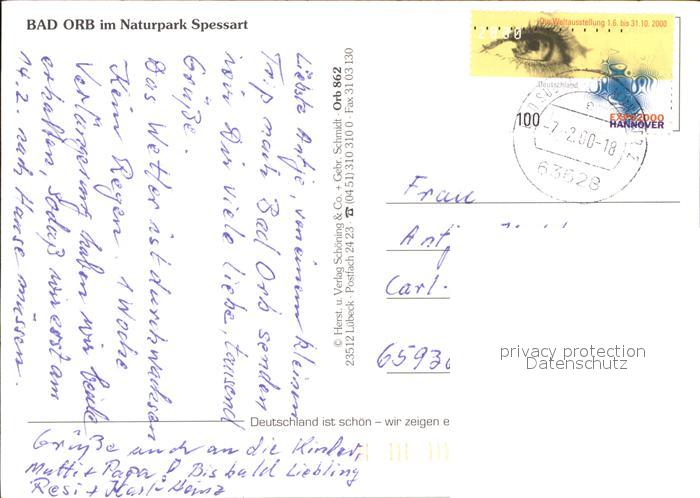 BAD ORB im Naturpark Spessart
Liebste Antje, von einem kleinen
Trip nach Bad Orb senden
wir Dir viele liebe, tausend
Grüße.
Das Wetter ist durchwachsen
Kein Regen. 1 Woche
Verlängerung haben wir beide
erhalten, sodaß wir erst am
14.2. nach Hause müssen.
Grüße auch an die Kinder,
Mutti + Papa! Bis bald Liebling
Resi + Karl-Heinz
© Herst. u. Verlag Schöning & Co. + Gebr. Schmidt · Orb 862
23512 Lübeck · Postfach 24 23 · ☎ (04 51) 310 310 · Fax 31 03 130
Deutschland ist schön – wir zeigen e
Die Weltausstellung 1.6. bis 31.10. 2000
2000
Deutschland
100
EXPO2000
HANNOVER
-7.2.00-18
63628
Frau
Antj
Carl-
6593
privacy protection
Datenschutz